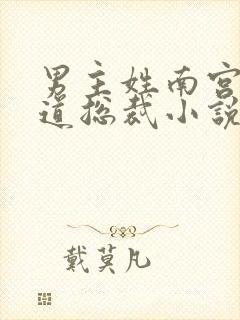 男主姓南宫
道总裁小說
戴莫凡